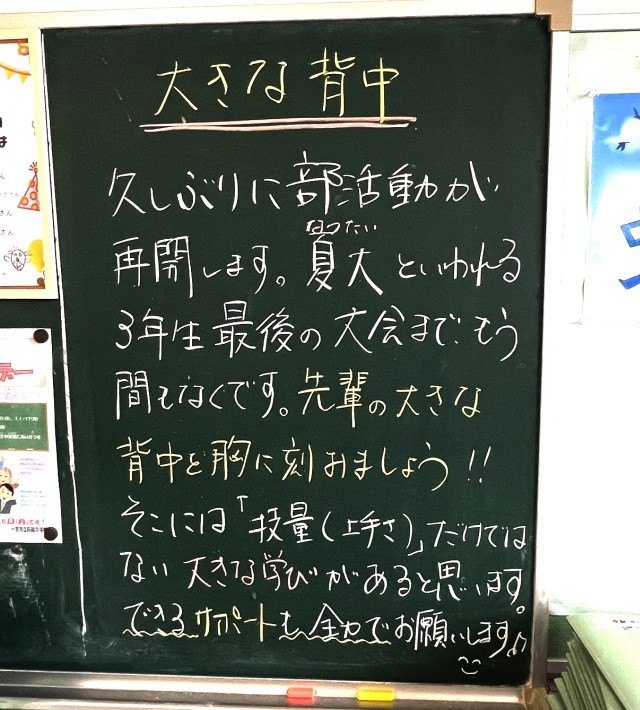 大きな背中
久しぶりに部活動が
なつたい
再開します。夏大といわれる
3年生最後の大会まで、もう
間もなくです。先輩の大きな
背中を胸に刻みましょう!!
そこには「技量(上手さ)」だけでは
ない大きな学びがあると思います。
できるサポートも全力でお願いします♪